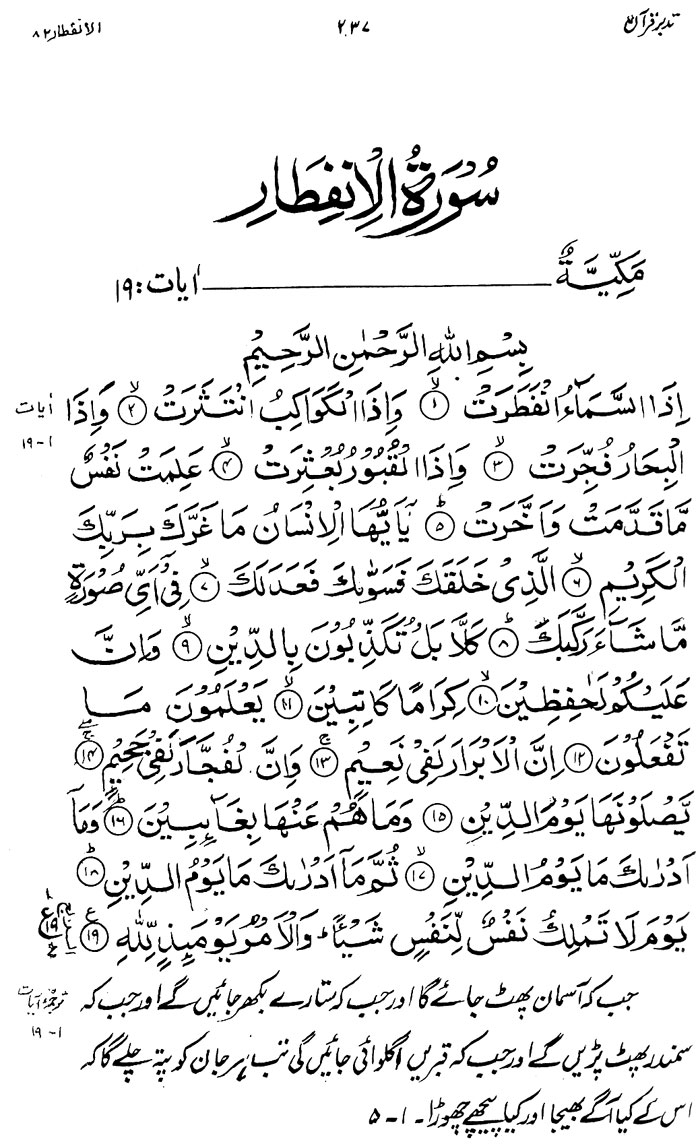 تدبر قرآن ۲۳۷ الانفطار ۸۲
سُوْرَةُ الْاِنْفِطَارِ
مَكِّيَّةٌ اٰيات: ۱۹
بِسْمِ اللهِ الرَّحْمٰنِ الرَّحِيْمِ
اِذَا السَّمَآءُ انْفَطَرَتْ ۱ وَاِذَا الْكَوَاكِبُ انْتَثَرَتْ ۲ وَاِذَا اٰيات
الْبِحَارُ فُجِّرَتْ ۳ وَاِذَا الْقُبُوْرُ بُعْثِرَتْ ۴ عَلِمَتْ نَفْسٌ ۱-۱۹
مَّا قَدَّمَتْ وَاَخَّرَتْ ۵ يٰاَيُّهَا الْاِنْسَانُ مَا غَرَّكَ بِرَبِّكَ
الْكَرِيْمِ ۶ الَّذِيْ خَلَقَكَ فَسَوّٰىكَ فَعَدَلَكَ ۷ فِيْٓ اَيِّ صُوْرَةٍ
مَّا شَآءَ رَكَّبَكَ ۸ كَلَّا بَلْ تُكَذِّبُوْنَ بِالدِّيْنِ ۹ وَاِنَّ
عَلَيْكُمْ لَحٰفِظِيْنَ ۱۰ كِرَامًا كَاتِبِيْنَ ۱۱ يَعْلَمُوْنَ مَا
تَفْعَلُوْنَ ۱۲ اِنَّ الْاَبْرَارَ لَفِيْ نَعِيْمٍ ۱۳ وَاِنَّ الْفُجَّارَ لَفِيْ جَحِيْمٍ ۱۴
يَّصْلَوْنَهَا يَوْمَ الدِّيْنِ ۱۵ وَمَا هُمْ عَنْهَا بِغَآئِبِيْنَ ۱۶ وَمَآ
اَدْرٰىكَ مَا يَوْمُ الدِّيْنِ ۱۷ ثُمَّ مَآ اَدْرٰىكَ مَا يَوْمُ الدِّيْنِ ۱۸
يَوْمَ لَا تَمْلِكُ نَفْسٌ لِّنَفْسٍ شَيْئًا وَالْاَمْرُ يَوْمَئِذٍ لِّلّٰهِ ۱۹ ع ۱۹
جب کہ آسمان پھٹ جائے گا اور جب کہ ستارے بکھر جائیں گے اور جب کہ ترجمۂ آیات
سمندر پھٹ پڑیں گے اور جب کہ قبریں اگلوائی جائیں گی تب ہر جان کو پتہ چلے گا کہ ۱-۱۹
اس کے کیا آگے بھیجا اور کیا پیچھے چھوڑا۔ ۱-۵